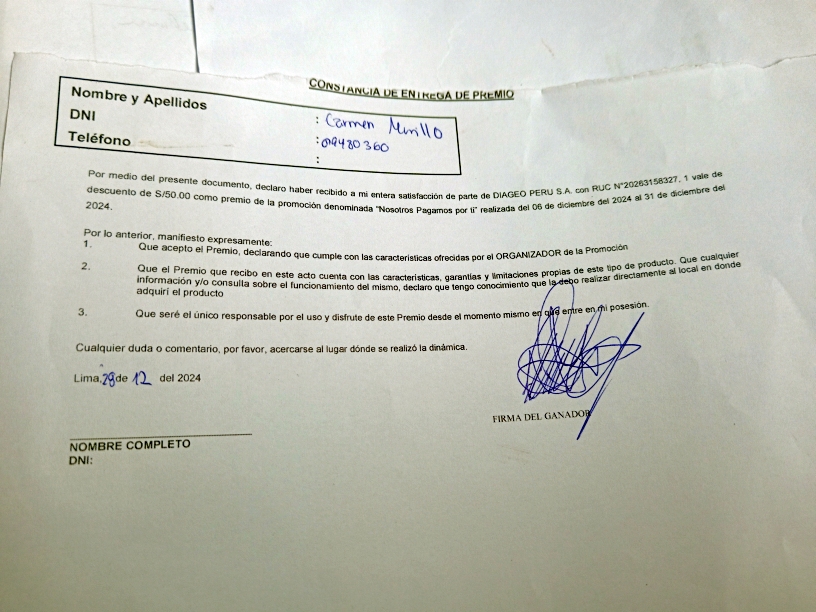 CONSTANCIA DE ENTREGA DE PREMIO
Nombre y Apellidos : Carmen Murillo
DNI : 019480360
Teléfono :
Por medio del presente documento, declaro haber recibido a mi entera satisfacción de parte de DIAGEO PERU S.A. con RUC N°20263158327, 1 vale de
descuento de S/50.00 como premio de la promoción denominada "Nosotros Pagamos por ti" realizada del 06 de diciembre del 2024 al 31 de diciembre del
2024.
Por lo anterior, manifiesto expresamente:
1. Que acepto el Premio, declarando que cumple con las características ofrecidas por el ORGANIZADOR de la Promoción
2. Que el Premio que recibo en este acto cuenta con las características, garantías y limitaciones propias de este tipo de producto. Que cualquier
información y/o consulta sobre el funcionamiento del mismo, declaro que tengo conocimiento que la debo realizar directamente al local en donde
adquirí el producto
3. Que seré el único responsable por el uso y disfrute de este Premio desde el momento mismo en que entre en mi posesión.
Cualquier duda o comentario, por favor, acercarse al lugar dónde se realizó la dinámica.
Lima, 29 de 12 del 2024
FIRMA DEL GANADOR
NOMBRE COMPLETO
DNI: